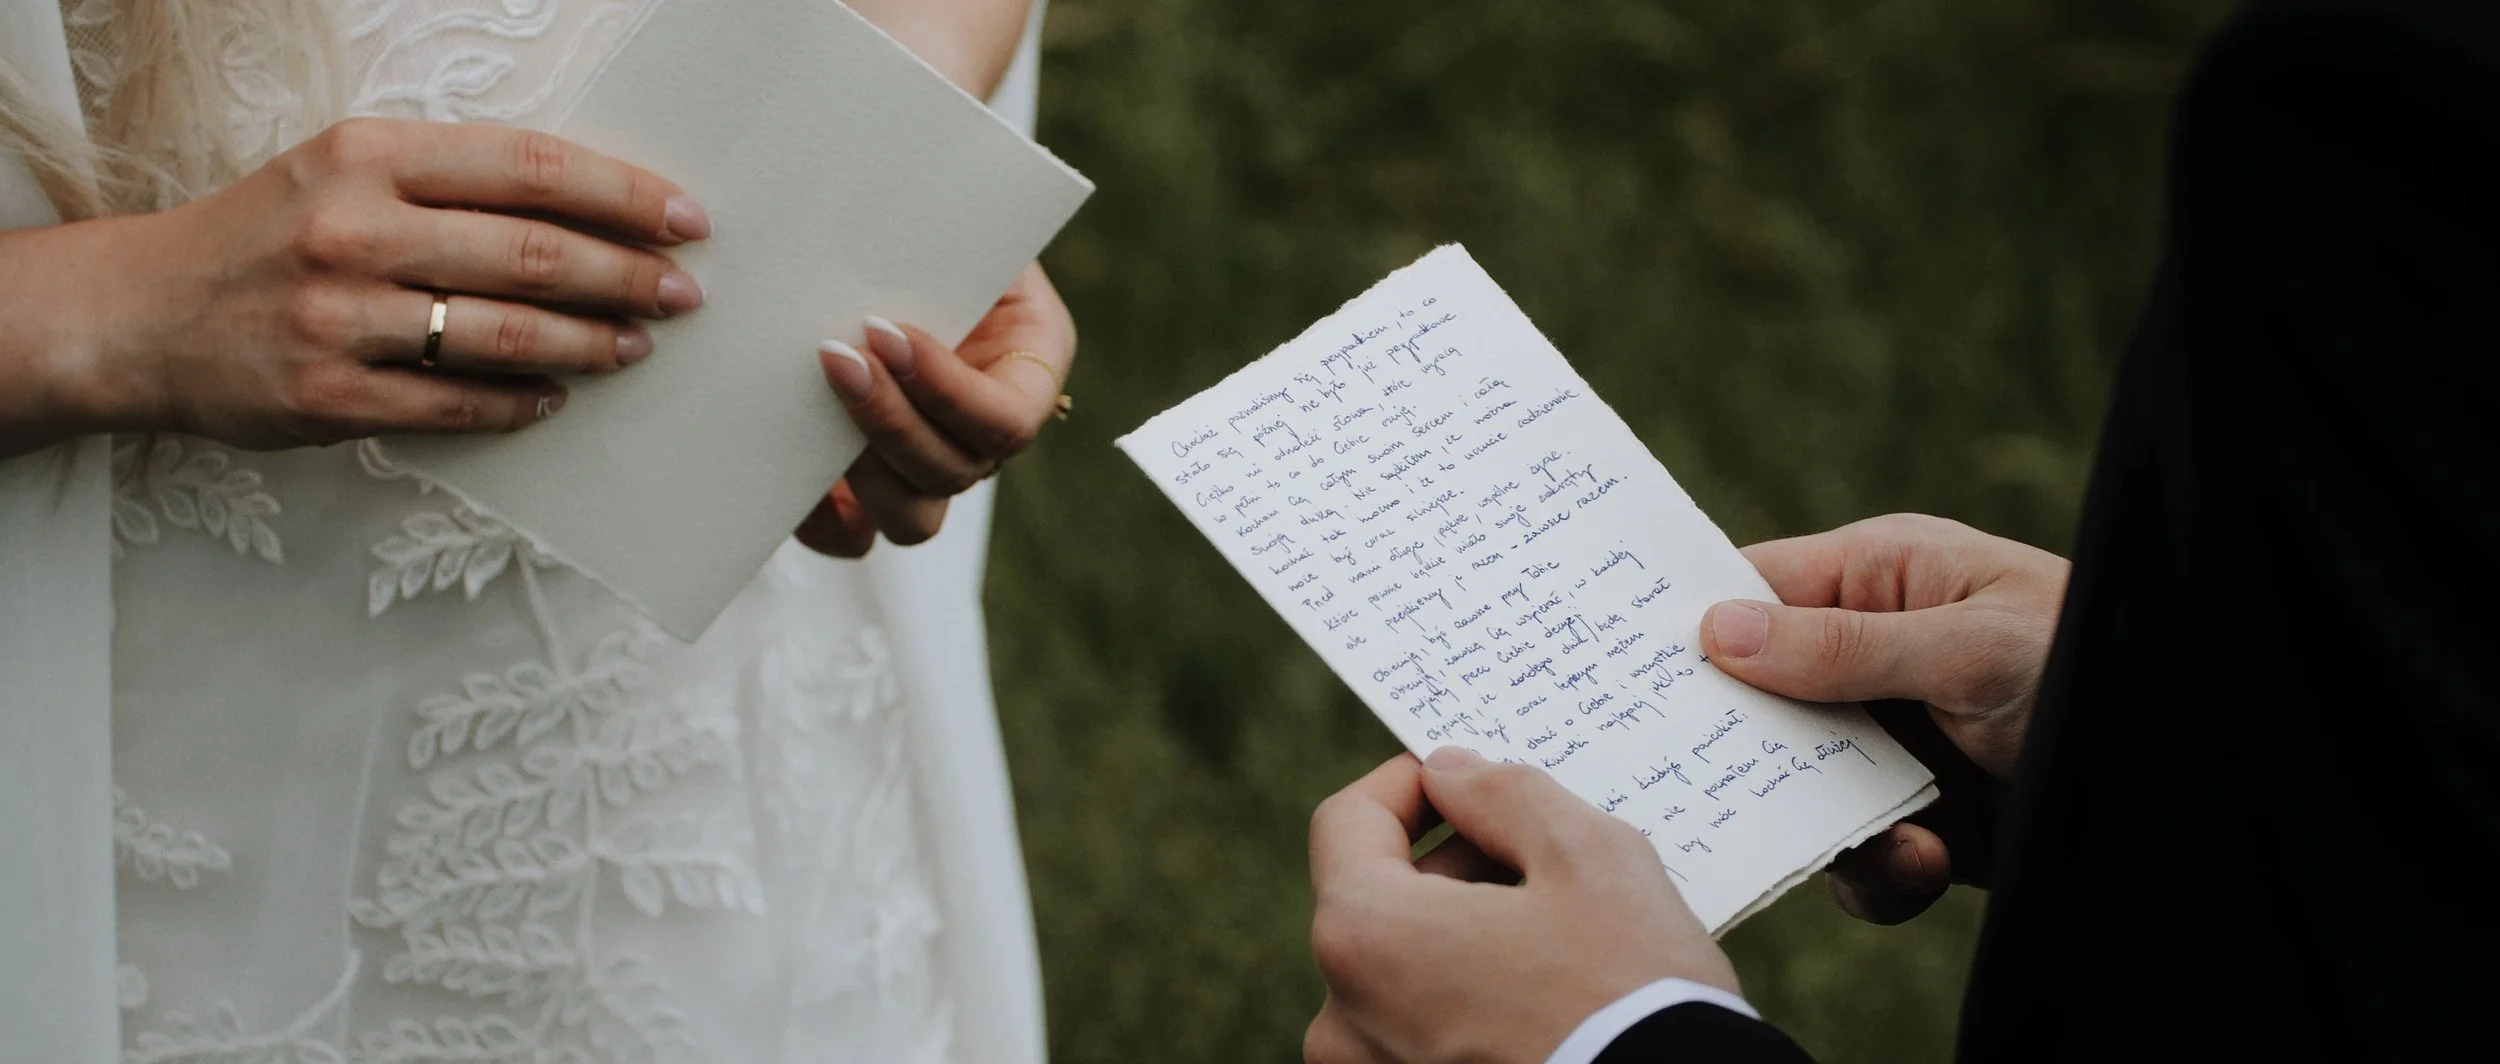 Chociaż poznaliśmy się przypadkiem, to co
stało się później nie było już przypadkowe.
Ciężko mi odnaleźć słowa, które wyrażą
w pełni to co do Ciebie czuję.
Kocham Cię całym swoim sercem i całą
swoją duszą. Nie sądziłem, że można
kochać tak mocno i że to uczucie codziennie
może być coraz silniejsze.
Przed nami długie, piękne, wspólne życie.
Które pewnie będzie miało swoje zakręty
ale przejdziemy je razem - zawsze razem.
Obiecuję, być zawsze przy Tobie
Obiecuję, zawsze Cię wspierać, w każdej
podjętej przez Ciebie decyzji
Obiecuję, że każdego dnia będę starał
być coraz lepszym mężem
dbać o Ciebie i wszystkie
kwiatki najlepiej jak to
ktoś kiedyś powiedział:
nie poznałem Cię
by móc kochać Cię dłużej.